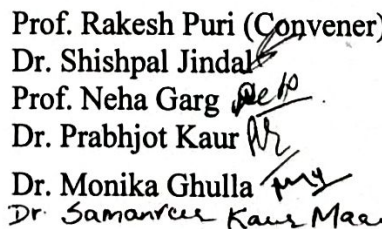 Prof. Rakesh Puri (Convener)
Dr. Shishpal Jindal
Prof. Neha Garg
Dr. Prabhjot Kaur
Dr. Monika Ghulla
Dr. Kaur